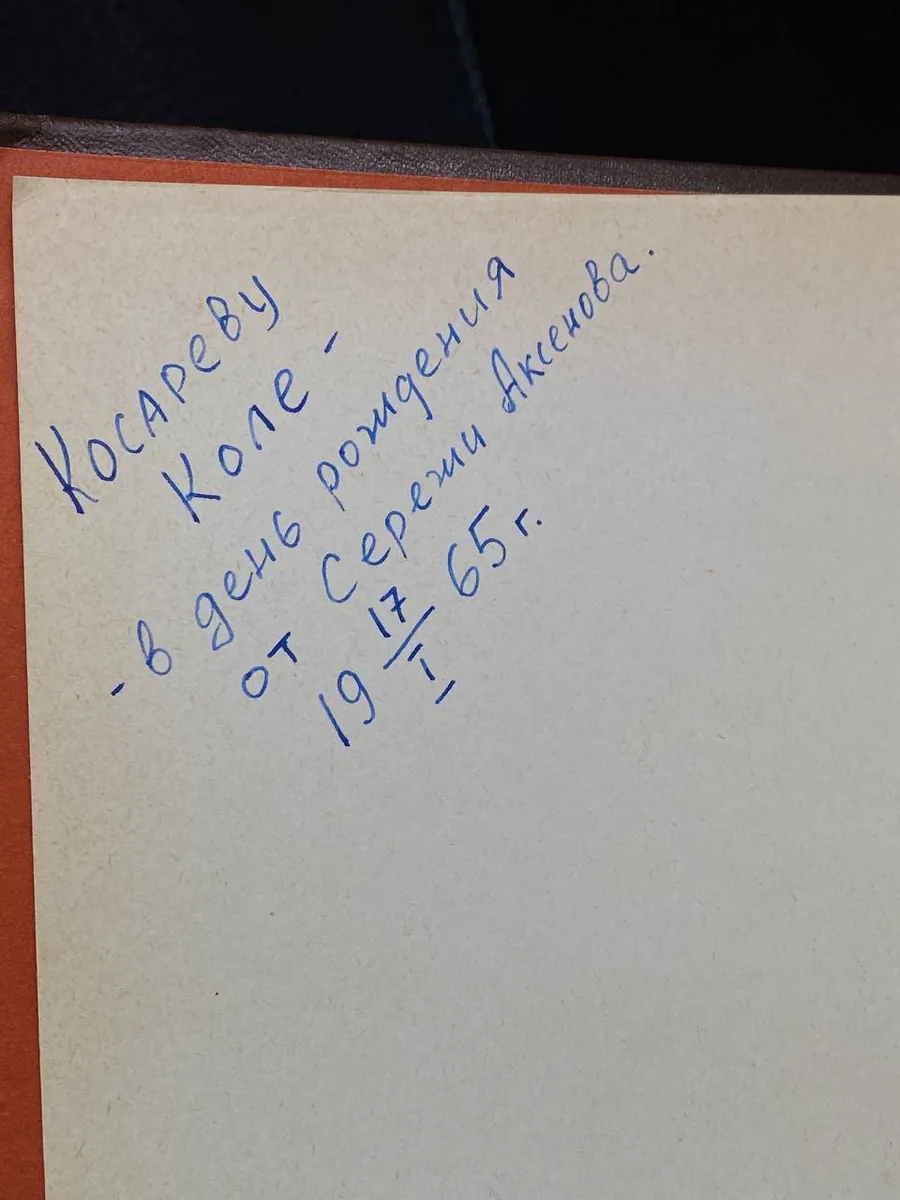 Косареву
Коле -
- в день рождения
от Сережи Аксенова.
19 17/I 65 г.